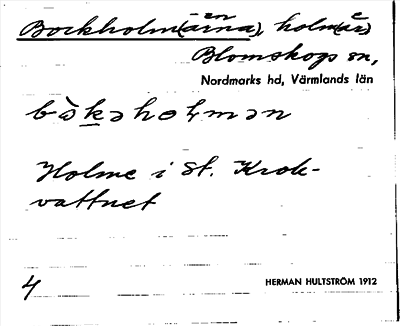 Bockholm(-en ärna), holm(ar)
Blomskogs sn,
Nordmarks hd, Värmlands län
bòkəholmən
Holme i St. Krok-
vattnet
4
HERMAN HULTSTRÖM 1912